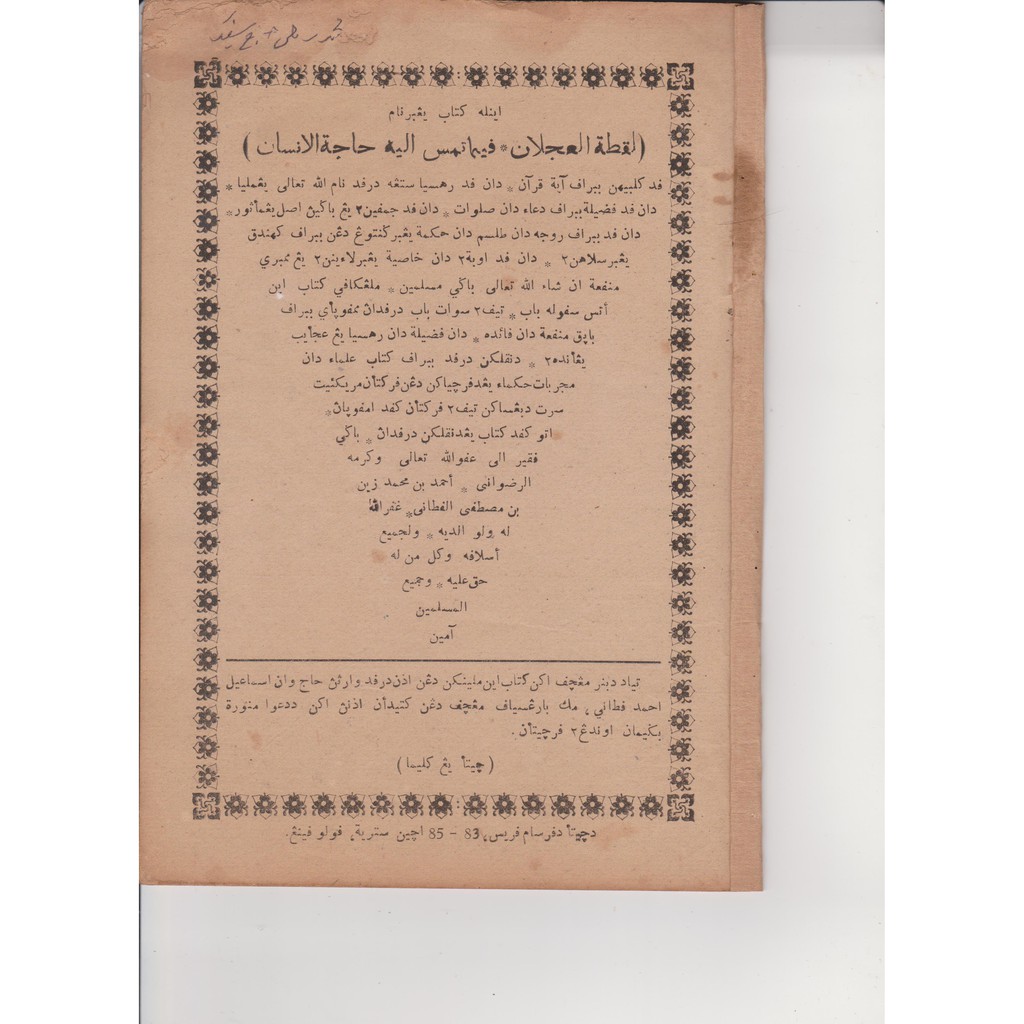 اينله كتاب يڠبرنام
(لقطة العجلان * فيما تمس اليه حاجة الانسان)
فد كلبيهن ببراف آية قرآن * دان فد رهسيا ستڠه درفد نام الله تعالى يڠمليا *
دان فد فضيلة ببراف دعاء دان صلوات * دان فد جمفين٢ يڠ باݢين اصل يڠمأثور *
دان فد ببراف روجه دان طلسم دان حكمة يڠبرݢنتوڠ دڠن ببراف كهندق
يڠبرسلاهن٢ * دان فد اوبة٢ دان خاصية يڠبرلاءينن٢ يڠ ممبري
منفعة ان شاء الله تعالى باݢي مسلمين * ملڠكافي كتاب اين
أتس سفوله باب * تيف٢ سوات باب درفدان ممفوڽأي ببراف
باڽق منفعة دان فائده * دان فضيلة دان رهسيا يڠ عجأيب
يڠأنده٢ * دنقلكن درفد ببراف كتاب علماء دان
مجربات حكماء يڠدفرچياكن دڠن فركتأن مريكئيت
سرت دبڠساكن تيف٢ فركتأن كفد امفوڽان *
اتو كفد كتاب يڠدنقلكن درفدان * باݢي
فقير الى عفو الله تعالى وكرمه
الرضوانى * أحمد بن محمد زين
بن مصطفى الفطانى * غفر الله
له ولو الديه * ولجميع
أسلافه وكل من له
حق عليه * وجميع
المسلمين
آمين
تياد دبنر مڠچف اكن كتاب اين ملينكن دڠن اذن درفد وارثن حاج وان اسماعيل
احمد فطاني، مك بارڠسياف مڠچف دڠن كتيدأن اذنن اكن ددعوا منورة
بݢيمان اوندڠ٢ فرچيتأن.
(چيتأ يڠ كليما)
دچيتأ دفرسام فريس، 83 - 85 اچين سترية، فولو فينڠ.